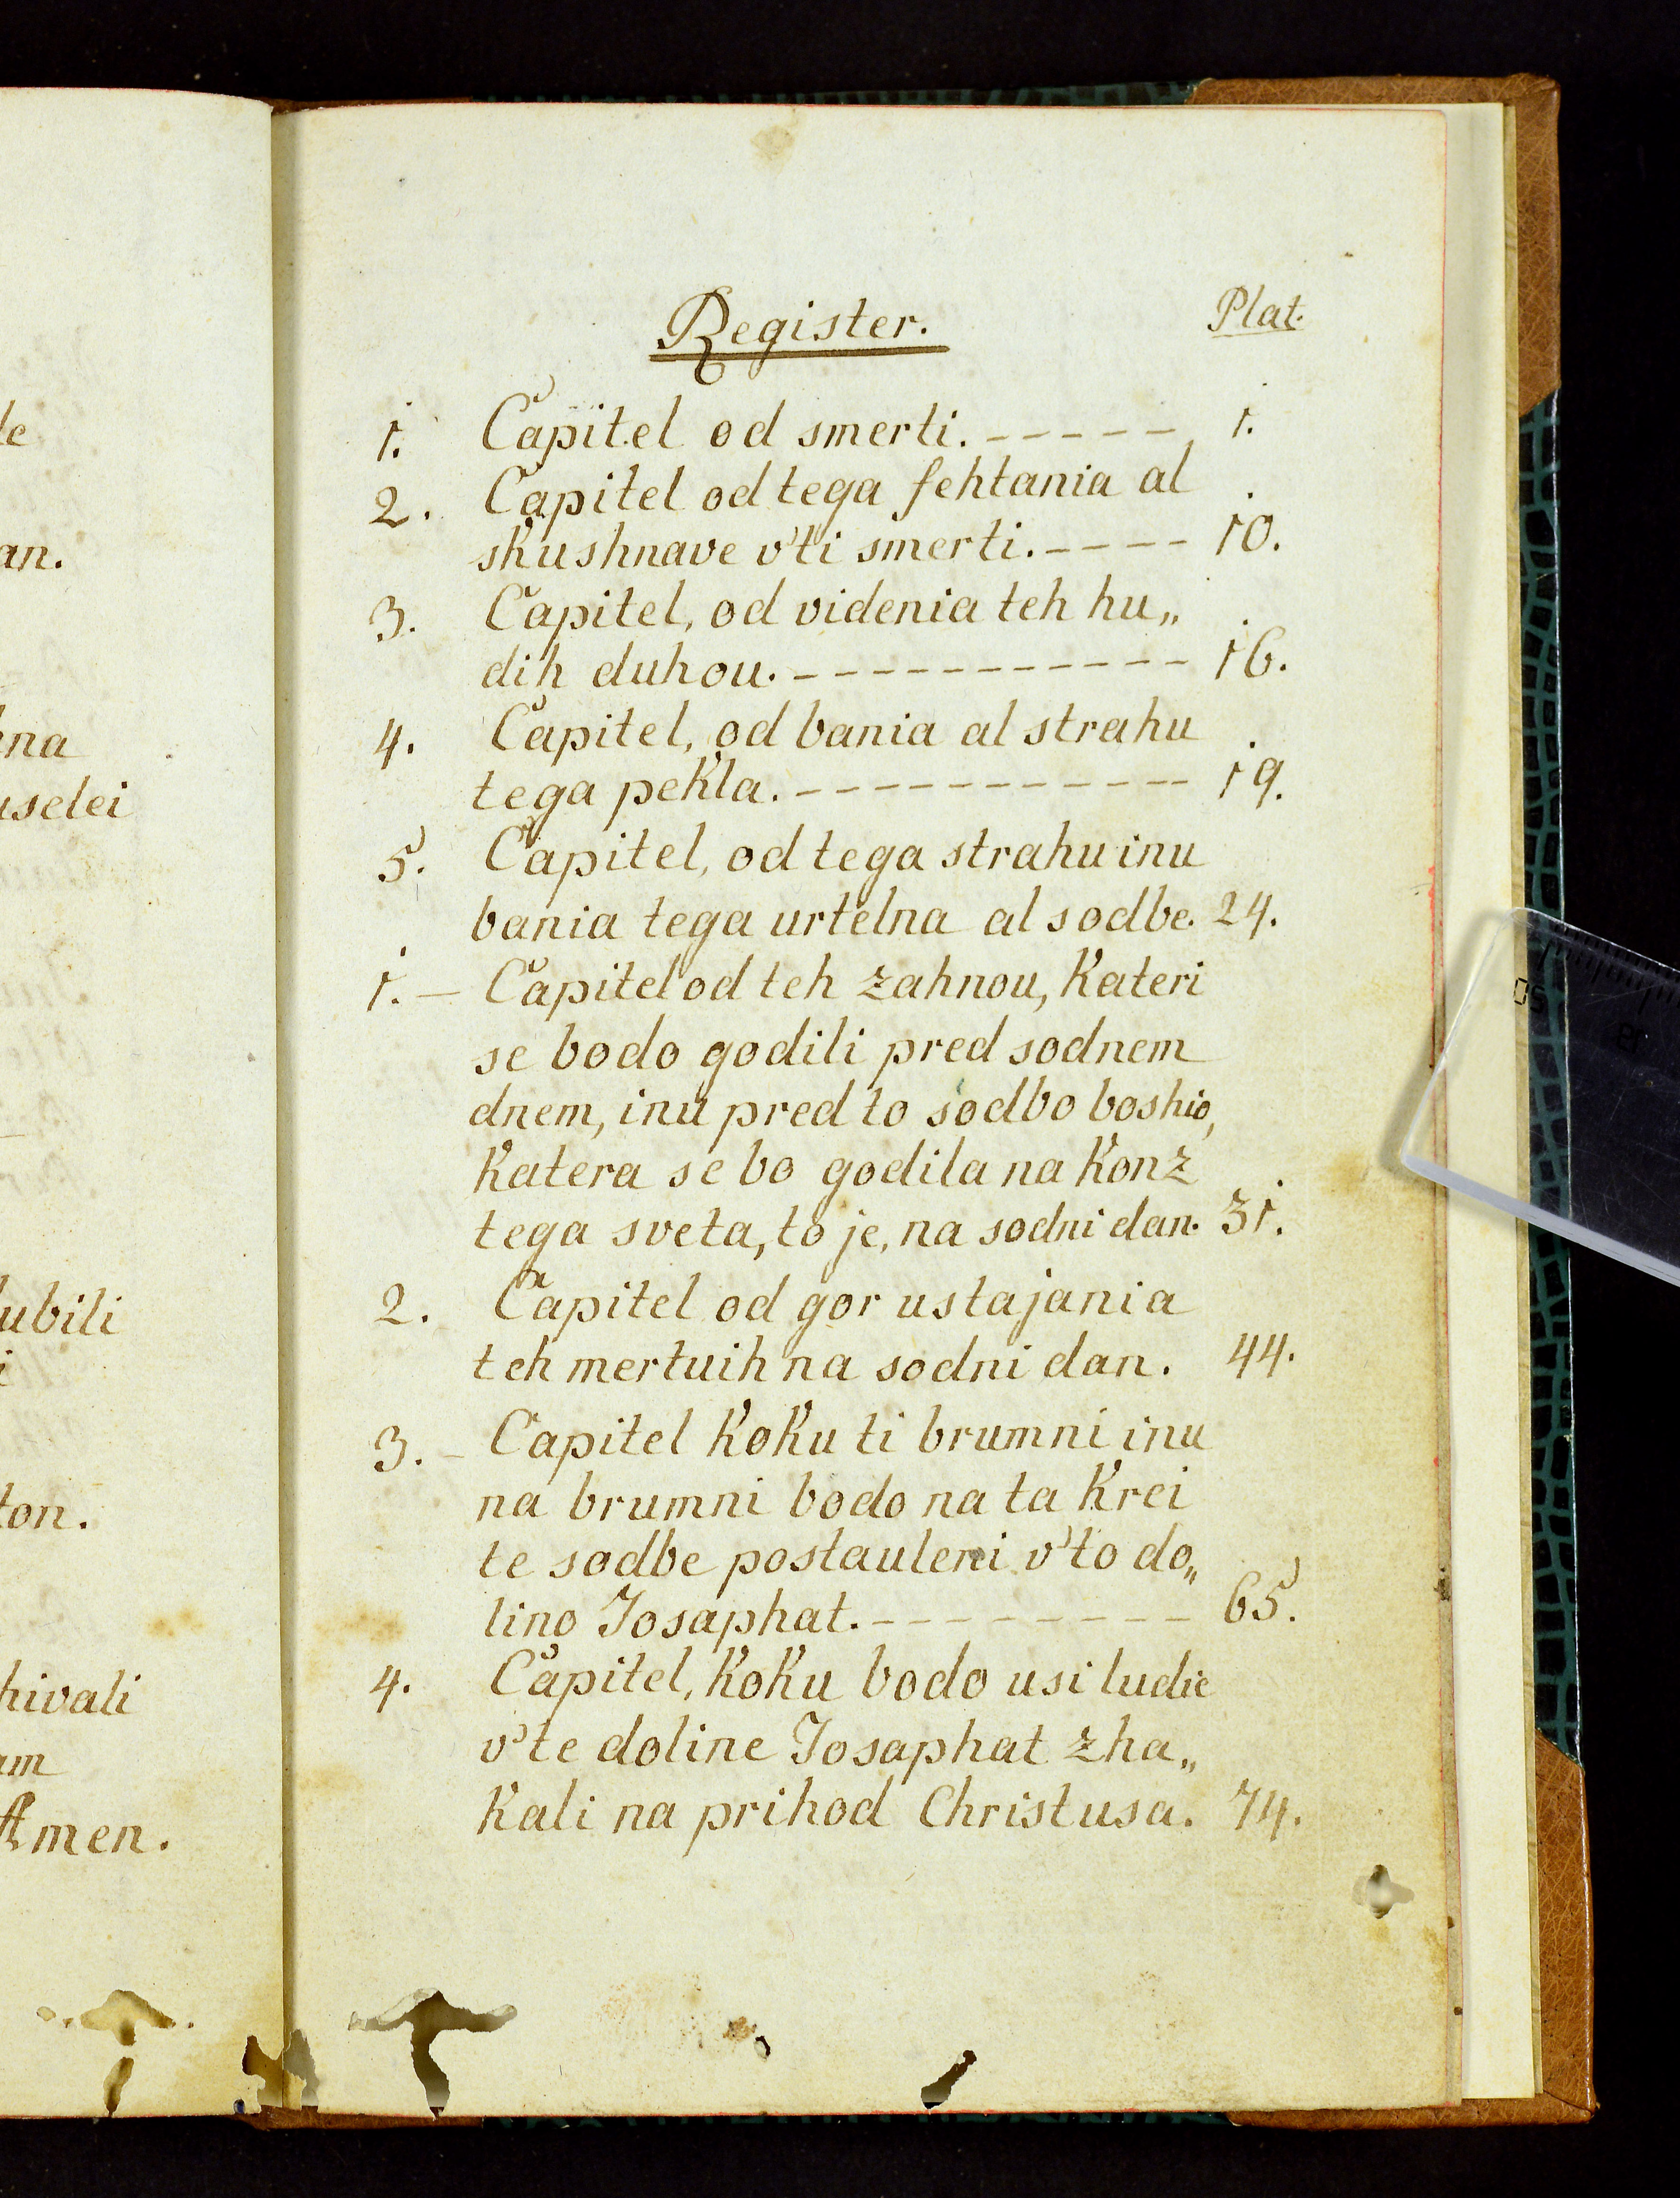 le
an.
na
uselei
lubili
i
ton.
hivali
am
Amen.
Register. Plat.
1. Capitel od smerti. ----- 1.
2. Capitel od tega fehtania al
skushnave v'ti smerti. ---- 10.
3. Capitel, od videnia teh hu„
dih duhou. ----------- 16.
4. Capitel, od bania al strahu
tega pekla. ----------- 19.
5. Capitel, od tega strahu inu
bania tega urtelna al sodbe. 24.
1. – Capitel od teh zahnou, Kateri
se bodo godili pred sodnem
dnem, inu pred to sodbo boshio,
Katera se bo godila na Konz
tega sveta, to je, na sodni dan. 31.
2. Capitel od gor ustajania
teh mertuih na sodni dan. 44.
3. – Capitel KoKu ti brumni inu
na brumni bodo na ta Krei
te sodbe postauleni v'to do„
lino Josaphat. --------- 65.
4. Capitel, KoKu bodo usi ludie
v'te doline Josaphat zha„
Kali na prihod Christusa. 74.